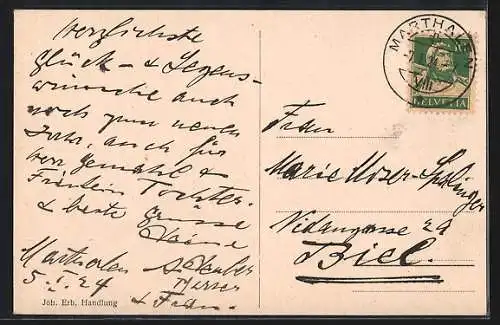 Herzlichste
Glück- & Segens-
wünsche auch
noch zum neuen
Jahr, auch für
Herr Gemahl &
Fräulein Tochter.
& beste Grüsse
Marthalen
5. I. 24
& Frau.
Joh. Erb, Handlung
MARTHALEN
VIII
HELVETIA
Frau
Marie Moser-
29
Biel.